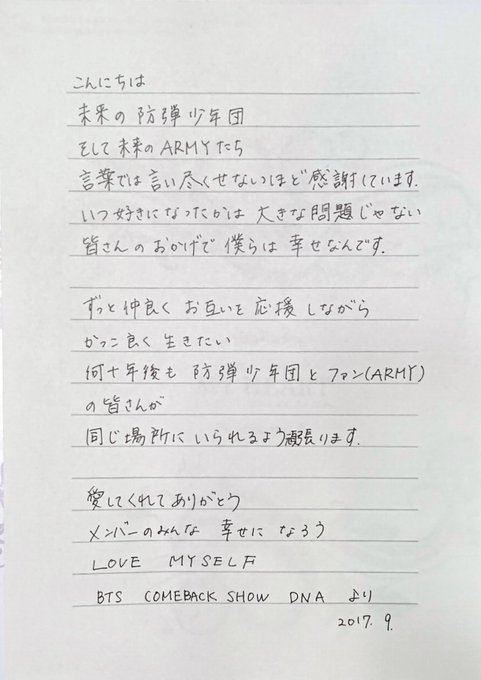 こんにちは
未来の防弾少年団
そして未来のARMYたち
言葉では言い尽くせないほど感謝しています.
いつ好きになったかは大きな問題じゃない
皆さんのおかげで僕らは幸せなんです.
ずっと仲良くお互いを応援しながら
かっこ良く生きたい
何十年後も防弾少年団とファン(ARMY)
の皆さんが
同じ場所にいられるよう頑張ります.
愛してくれてありがとう
メンバーのみんな 幸せになろう
LOVE MYSELF
BTS COMEBACK SHOW DNA より
2017. 9.